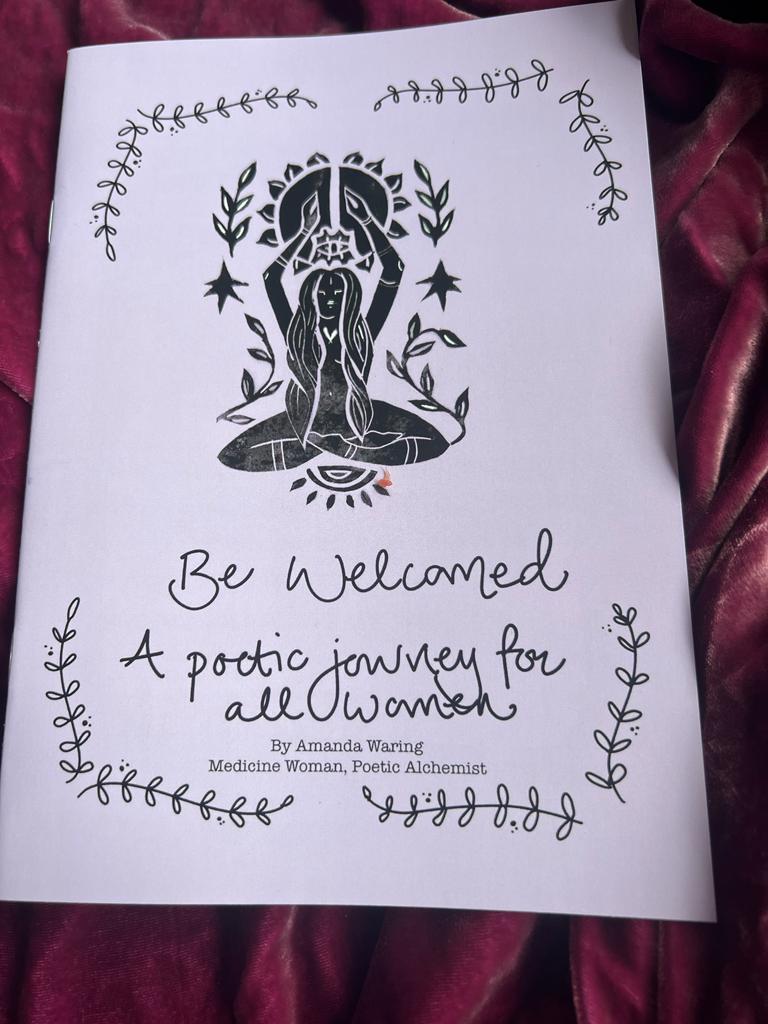 Be Welcomed
A poetic journey for
all women
By Amanda Waring
Medicine Woman, Poetic Alchemist